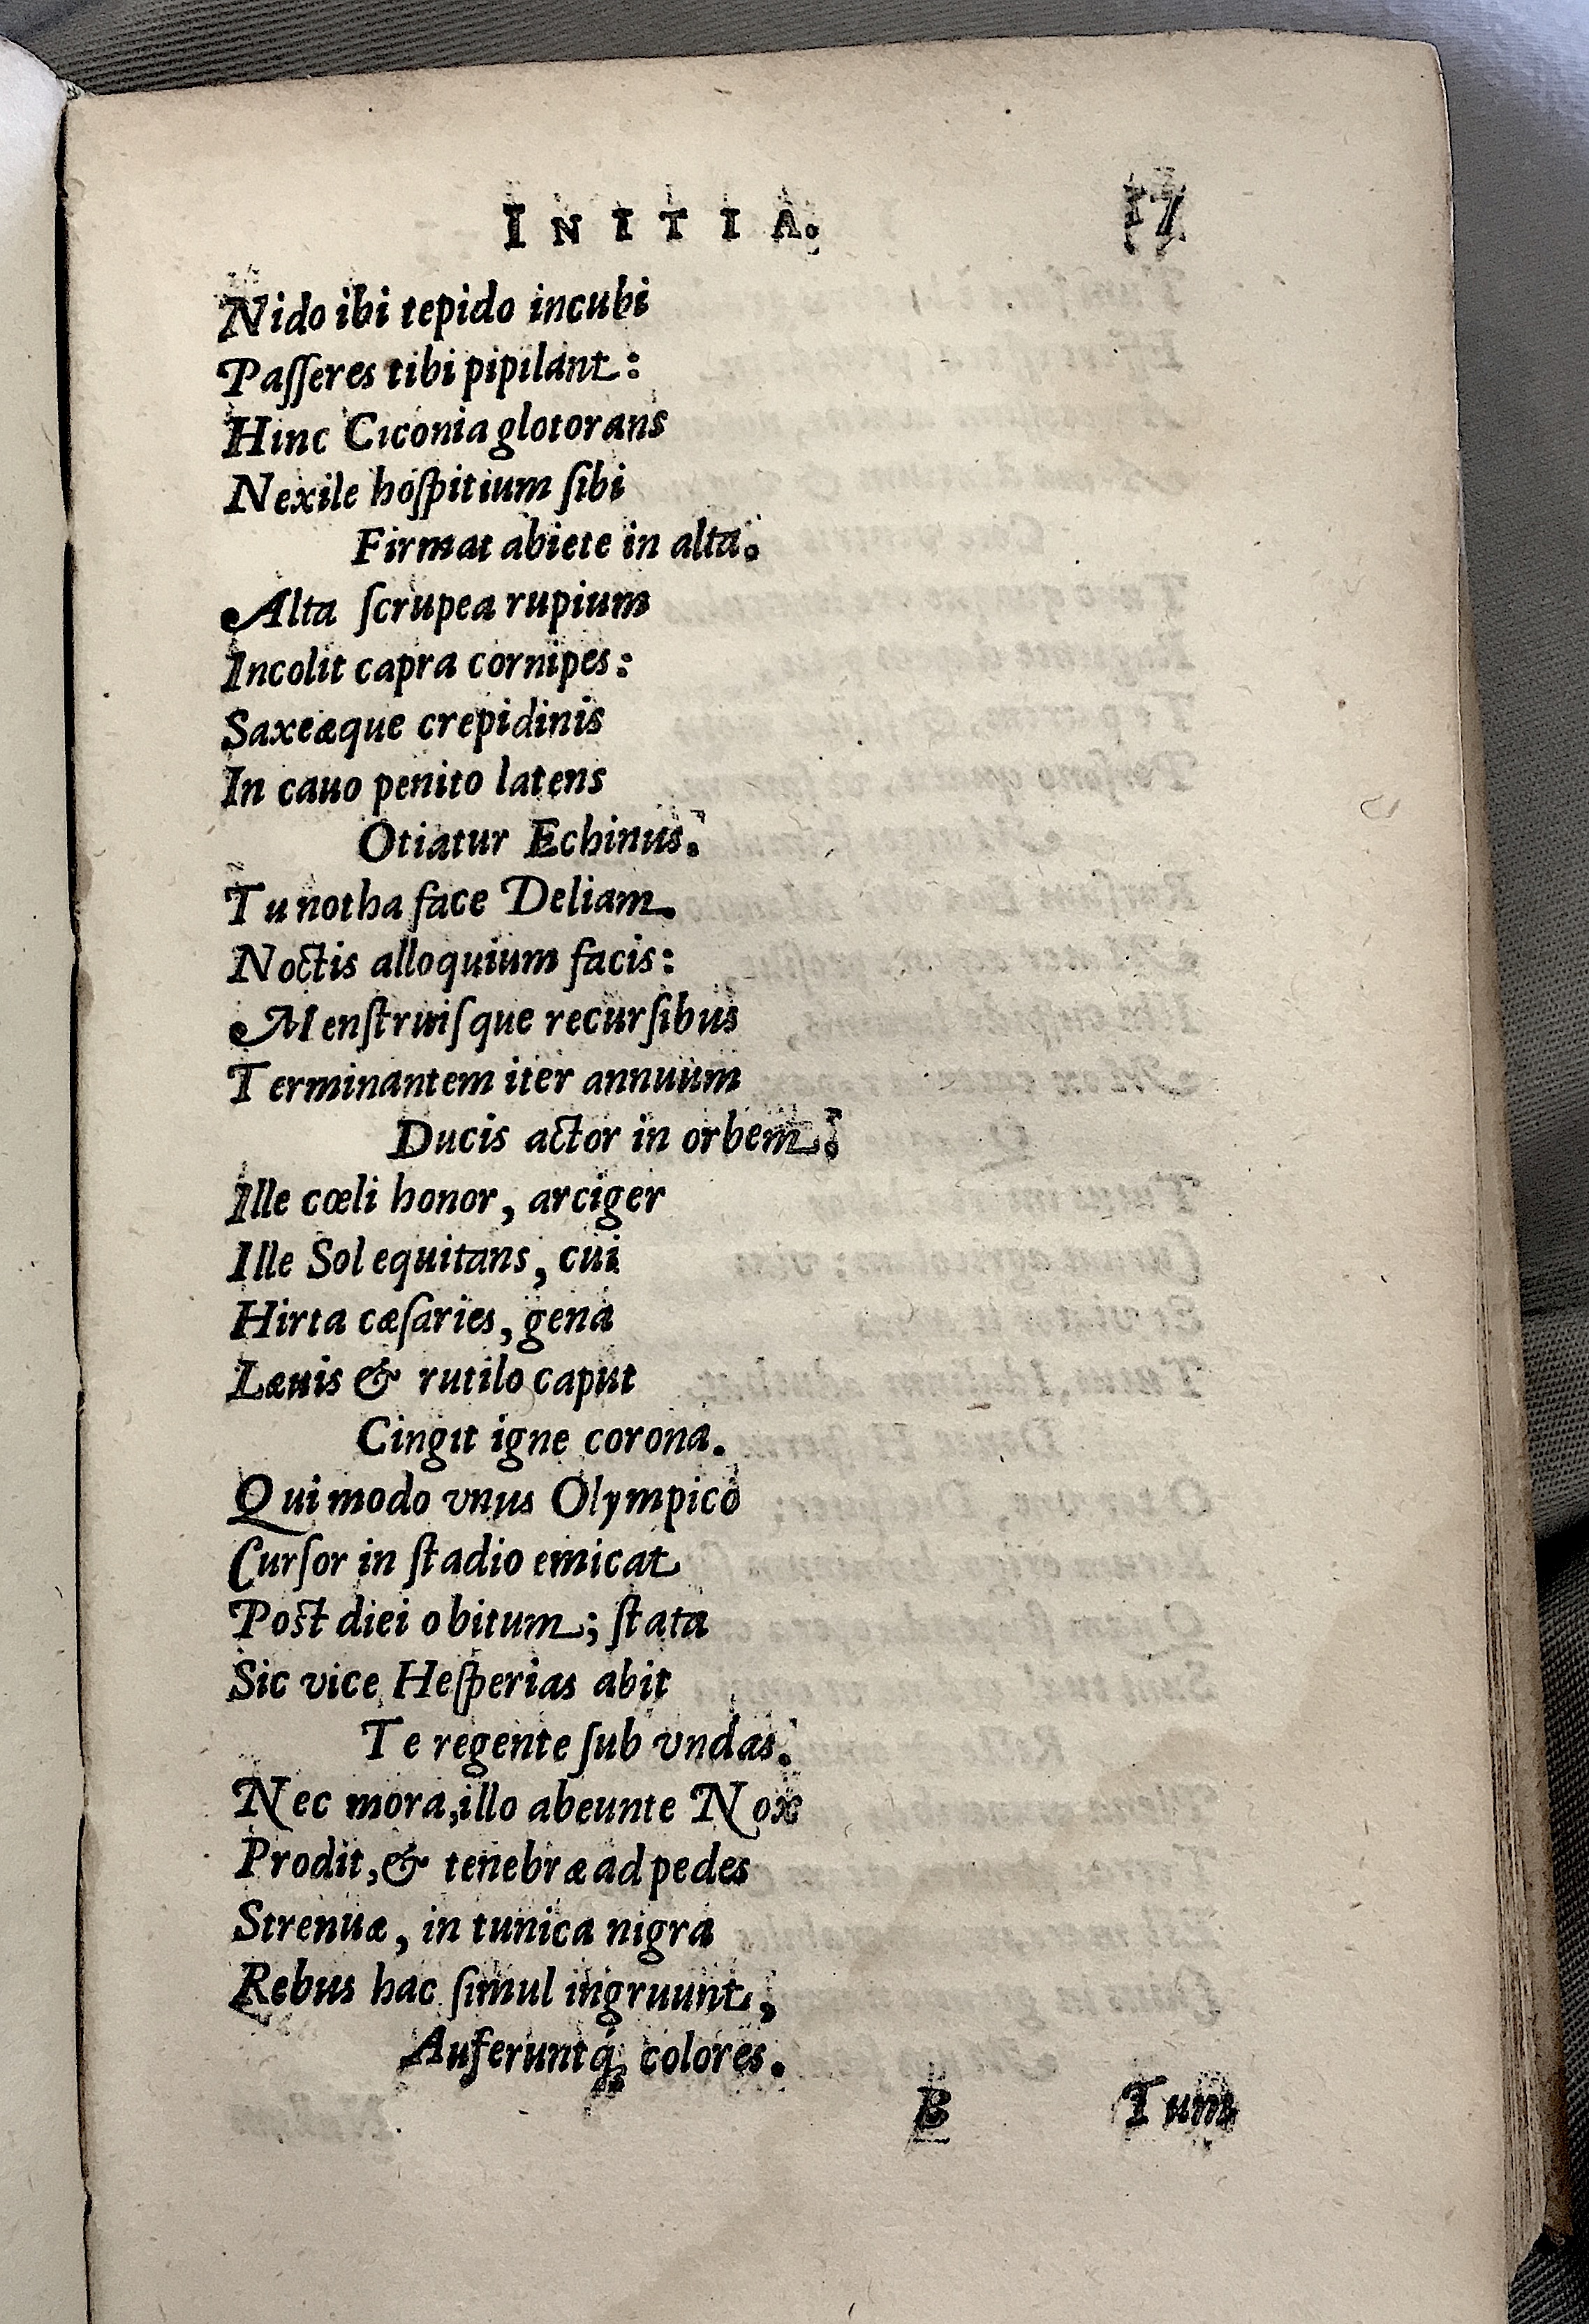 INITIA. 17
Nido ibi tepido incubi
Paſſeres tibi pipilant:
Hinc Ciconia glotorans
Nexile hoſpitium ſibi
Firmat abiete in alta.
Alta ſcrupea rupium
Incolit capra cornipes:
Saxeæque crepidinis
In cauo penito latens
Otiatur Echinus.
Tu notha face Deliam
Noctis alloquium facis:
Menſtruiſque recurſibus
Terminantem iter annuum
Ducis actor in orbem.
Ille cœli honor, arciger
Ille Sol equitans, cui
Hirta cæſaries, gena
Læuis & rutilo caput
Cingit igne corona.
Qui modo vnus Olympico
Curſor in ſtadio emicat
Poſt diei obitum; ſtata
Sic vice Heſperias abit
Te regente ſub vndas.
Nec mora, illo abeunte Nox
Prodit, & tenebræ ad pedes
Strenuæ, in tunica nigra
Rebus hac ſimul ingruunt,
Auferuntq́; colores.
B Tum